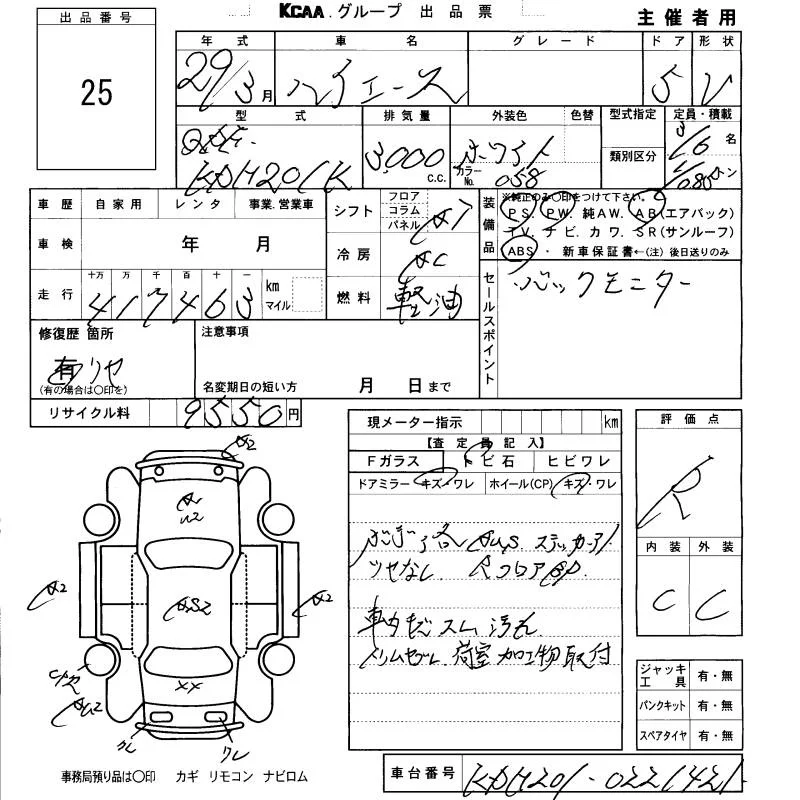 KCAA グループ 出品票
主催者用
出品番号
25
年式 車名 グレード ドア 形状
29/3月 ハイエース 5 V
型式 排気量 外装色 色替 型式指定 定員・積載
類別区分
QDF-
KDH201K 3,000 c.c. ホワイト
カラーNo. 058
3/6名
トン
車歴 自家用 レンタ 事業.営業車
車検 年 月
走行 十万 万 千 百 十 一 km マイル
417463
シフト フロア コラム パネル AT
冷房 AC
燃料 軽油
装備品
※純正のみ○印をつけて下さい。
PS, PW, 純AW, AB(エアバック)
TV, ナビ, カワ, SR(サンルーフ)
ABS・ 新車保証書←(注) 後日送りのみ
セールスポイント
バックモニター
修復歴 箇所
有 リヤ
(有の場合は○印を)
注意事項
名変期日の短い方 月 日まで
リサイクル料 9550円
現メーター指示 km
【査定員記入】
Fガラス トビ石 ヒビワレ
ドアミラー キズ・ワレ ホイール(CP) キズ・ワレ
ステッカー
ツヤなし Rフロア
スム 汚れ
荷室加工物取付
評価点
R
内装 外装
C C
ジャッキ工具 有・無
パンクキット 有・無
スペアタイヤ 有・無
A2
A2
A2
XX
ワレ
ワレ
事務局預り品は○印 カギ リモコン ナビロム
車台番号 KDH201-0221421